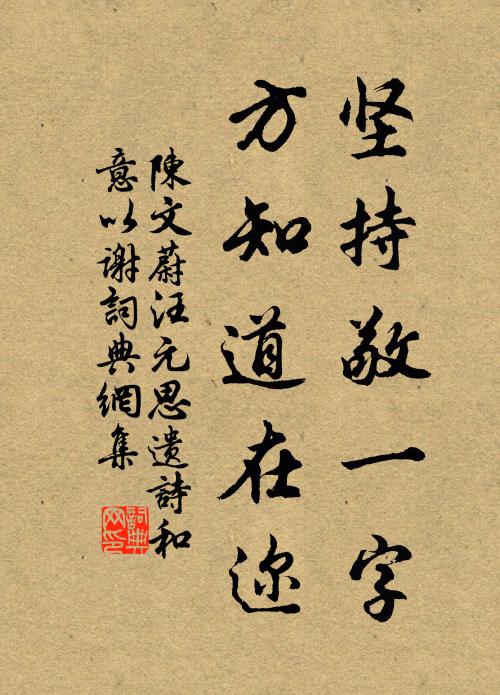 坚持敬一字
方知道在迩
陳文蔚汪元思遺詩和
意以谢詞典網集
詞典网印